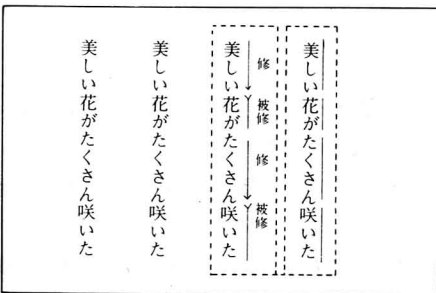 美しい花がたくさん咲いた
修 被修 修 被修
美しい花がたくさん咲いた
美しい花がたくさん咲いた
美しい花がたくさん咲いた